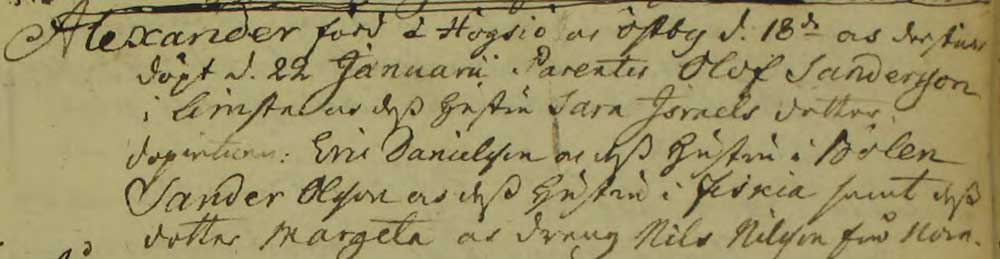 Alexander född i Högsiö ac Östby d. 18de
döpt d. 22 Januarii Parentes Olof Sandersson
i ac deß Hustru Sara Israels dotter.
Eric Danielsson ac deß Hustru i Bölen
Sander Olsson ac deß Hustru i samt deß
dotter Margeta ac dreng Nils Nilsson frå